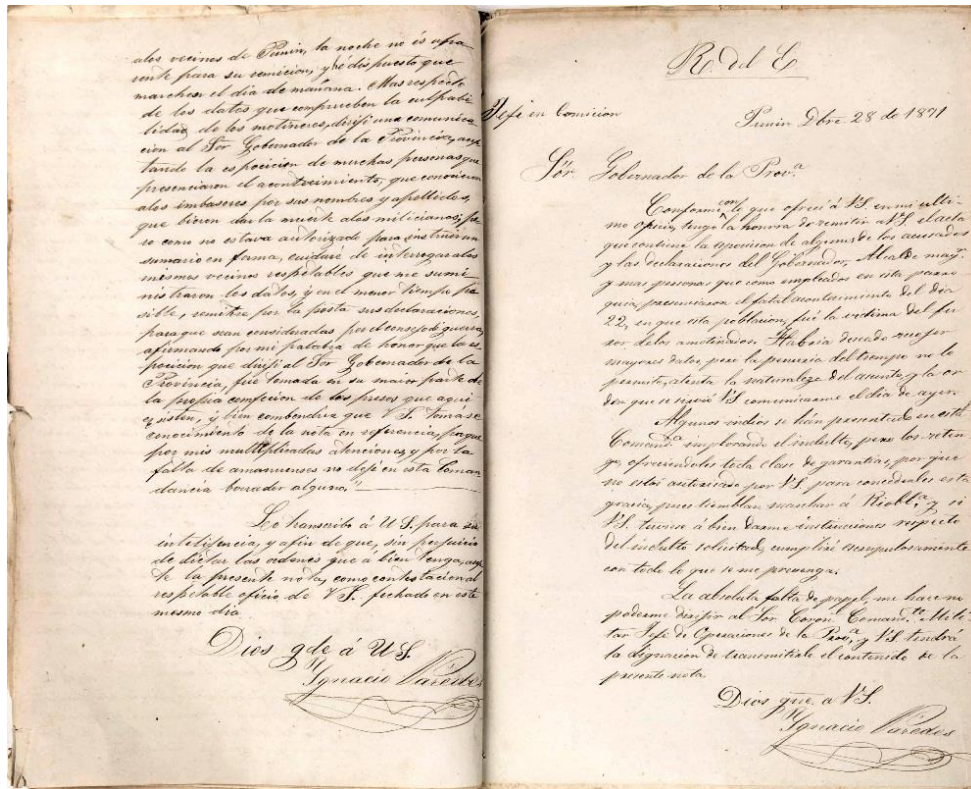 alos vecinos de Punin, la noche no és apa-
rente para su comicion, y hé dispuesto que
marchen el dia de mañana. Mas respecto
de los datos que comprueben la culpabi-
lidad de los motineros, dirijí una comunica
cion al Sor Gobernador de la Provincia,
tando la esposicion de muchas personas que
presenciaron el acontecimiento, que conocieron
alos imbasores por sus nombres y apellidos,
que bieron dar la muerte alos milicianos; pe-
ro como no estava autorizado para instruir un
sumario en forma, cuidaré de interrogar alos
mismos vecinos respetables que me sumi
nistraron los datos, y en el menor tiempo po
sible, remitiré por la posta sus declaraciones,
para que sean consideradas por el consejo de guerra,
afirmando por mi palabra de honor que la es-
posicion que dirijí al Sor Gobernador de la
Provincia, fué tomada en su maior parte de
la propia comfecion de los presos que aqui
ecsisten, y bien combendria que V S. tomáse
conocimiento de la nota en referencia, porque
por mis multiplicadas atenciones y por la
falta de amanuenses no dejé en esta Coman
dancia borrador alguno."
Lo transcribo á U S. para su
intelijencia, y afin de que, sin perjuicio
de dictar las ordenes que á bien tenga,
te la presente nota, como contestacion al
respetable oficio de V S. fechado en este
mismo dia.
Dios gde á U S.
Ygnacio Paredes
R. del E
Jefe en Comicion
Punin Dbre 28 de 1871
Sōr Gobernador de la Prov.a
Conforme con lo que ofrecí á VS. en mi ulti-
mo oficio, tengo la honora de remitir a VS. el acta
que contiene la esposicion de algunos de los acusados
y las declaraciones del Gobernador, Alcalde mayr.
y mas personas que como empleados en esta parro
quia, presenciaron el fatal acontecimiento del dia
22, en que esta poblacion, fué la victima del fu-
ror delos amotinados. Habria deseado recojer
mayores datos, pero la penuria del tiempo no lo
permite, atenta la naturaleza del asunto, y la or
den que se sirvió VS comunicarme el dia de ayer.
Algunos indios se han presentado en esta
Comand.a implorando el indulto, pero los reten
go, ofreciendoles toda clase de garantias, por que
no estoi autorizado por VS. para concederles esta
gracia, pues tiemblan marchar á Riobb.a, y si
VS. tuviese á bien darme instrucciones respecto
del indulto solicitado, cumpliré escrupulosamente
con todo lo que se me prevenga.
La absoluta falta de papel, me hace no
poderme dirijir al Sor. Coron.l Comand.te Mili-
tar Jefe de Operaciones de la Prov.a, y VS. tendrá
la dignacion de transmitirle el contenido de la
presente nota.
Dios gue. a VS.
Ygnacio Paredes